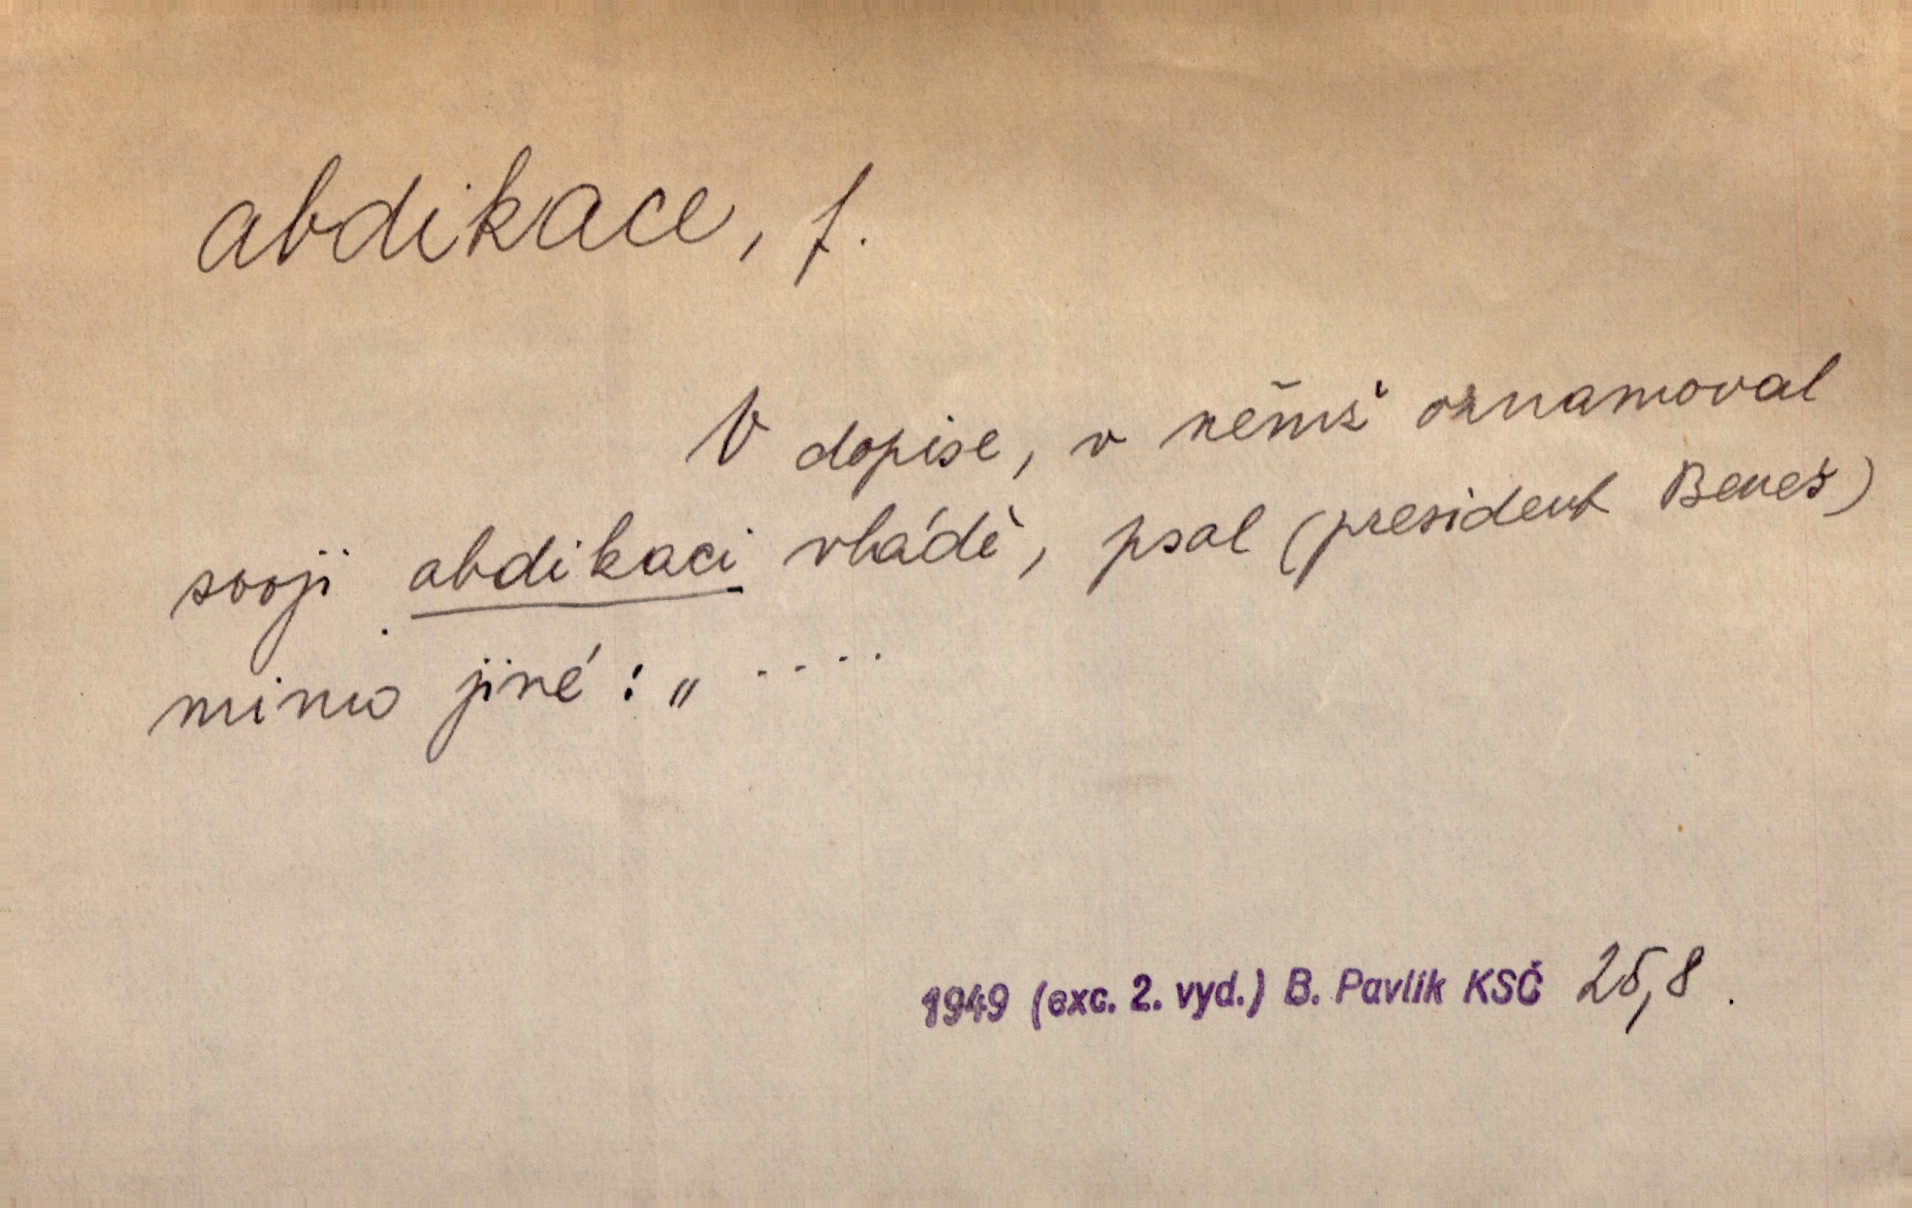 abdikace, f.
V dopise, v němž oznamoval
svoji abdikaci vládě, psal (president Beneš)
mimo jiné: „ ....
1949 (exc. 2. vyd.) B. Pavlík KSČ 25,8.